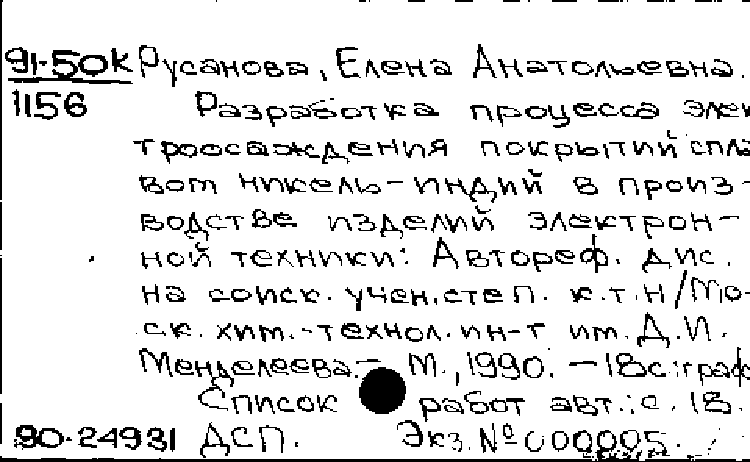 91-50к Русанова, Елена Анатольевна.
1156 Разработка процесса элек
троосаждения покрытий спла
вом никель-индий в произ-
водстве изделий электрон-
ной техники: Автореф. дис.
на соиск. учен. степ. к.т.н/Мо-
ск. хим.-технол. ин-т им. Д.И.
Менделеева.- М., 1990. - 18с.:граф
Список работ авт.: с. 18.
90-24931 ДСП. Экз. № 000005.